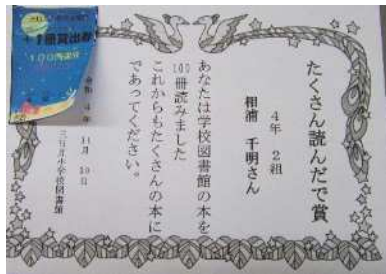 たくさん読んで賞
4年 2組
相浦 千明さん
あなたは学校図書館の本を
100冊読みました
これからもたくさんの本に
であってください。
4年 11月
小学校図書館
+1冊貸出券